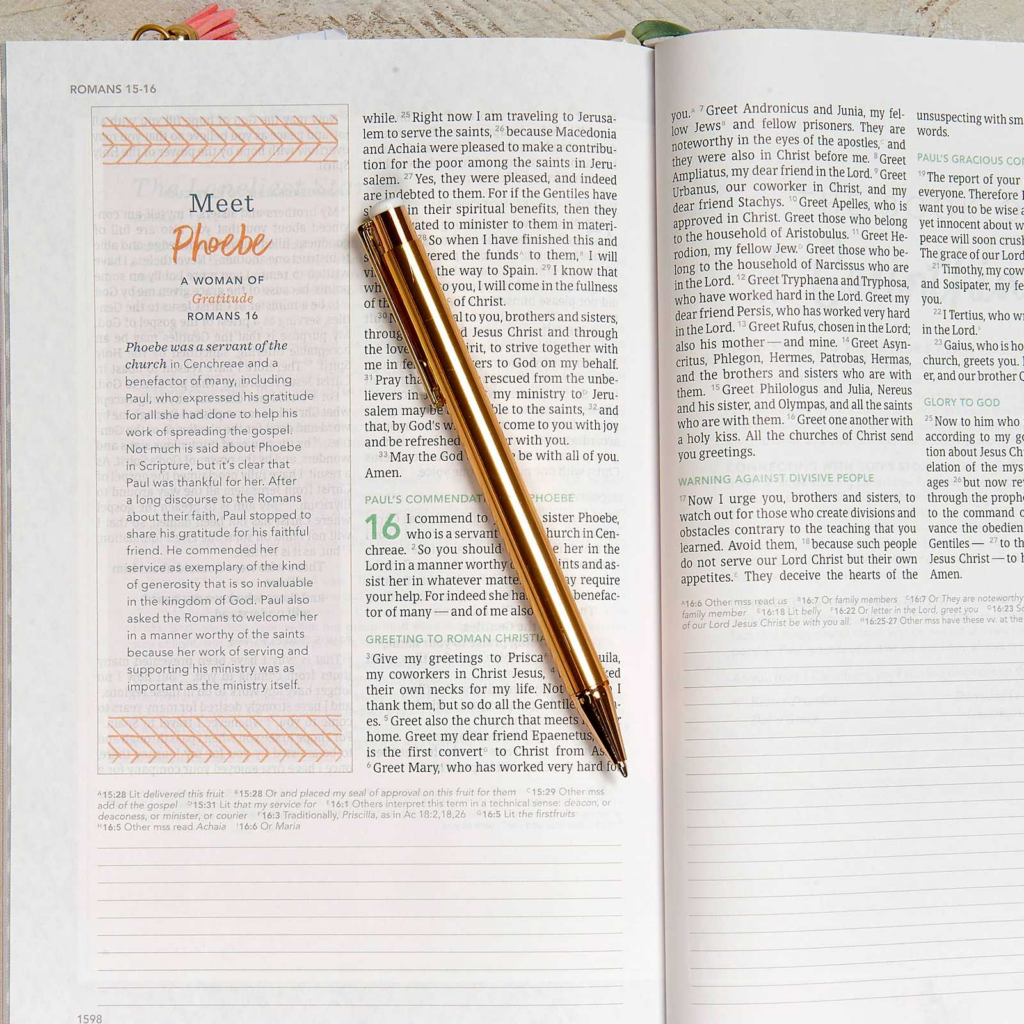 ROMANS 15-16
Meet
Phoebe
A WOMAN OF
Gratitude
ROMANS 16
Phoebe was a servant of the
church in Cenchreae and a
benefactor of many, including
Paul, who expressed his gratitude
for all she had done to help his
work of spreading the gospel.
Not much is said about Phoebe
in Scripture, but it's clear that
Paul was thankful for her. After
a long discourse to the Romans
about their faith, Paul stopped to
share his gratitude for his faithful
friend. He commended her
service as exemplary of the kind
of generosity that is so invaluable
in the kingdom of God. Paul also
asked the Romans to welcome her
in a manner worthy of the saints
because her work of serving and
supporting his ministry was as
important as the ministry itself.
while. 25 Right now I am traveling to Jerusa-
lem to serve the saints, 26 because Macedonia
and Achaia were pleased to make a contribu-
tion for the poor among the saints in Jeru-
salem. 27 Yes, they were pleased, and indeed
are indebted to them. For if the Gentiles have
in their spiritual benefits, then they
to minister to them in materi-
28 So when I have finished this and
the funds A to them, B I will
the way to Spain. 29 I know that
to you, I will come in the fullness
of Christ.
30 to you, brothers and sisters,
Jesus Christ and through
the love to strive together with
me to God on my behalf.
31 Pray rescued from the unbe-
lievers in my ministry to D Jeru-
salem may to the saints, 32 and
that, by God's come to you with joy
and be refreshed with you.
33 May the God be with all of you.
Amen.
PAUL'S PHOEBE
16 I commend to sister Phoebe,
who is a servant in Cen-
chreae. 2 So you should her in the
Lord in a manner worthy and as-
sist her in whatever require
your help. For indeed she benefac-
tor of many — and of me
GREETING TO ROMAN
3 Give my greetings to Prisca
my coworkers in Christ Jesus,
their own necks for my life. Not I
thank them, but so do all the
es. 5 Greet also the church that meets
home. Greet my dear friend Epaenetus,
is the first convert G to Christ from
6 Greet Mary, I who has worked very hard for
A 15:28 Lit delivered this fruit B 15:28 Or and placed my seal of approval on this fruit for them C 15:29 Other mss
add of the gospel D 15:31 Lit that my service for E 16:1 Others interpret this term in a technical sense: deacon, or
deaconess, or minister, or courier F 16:3 Traditionally, Priscilla, as in Ac 18:2,18,26 G 16:5 Lit the firstfruits
H 16:5 Other mss read Achaia I 16:6 Or Maria
1598
you. A 7 Greet Andronicus and Junia, my fel-
low Jews B and fellow prisoners. They are
noteworthy in the eyes of the apostles, C and
they were also in Christ before me. 8 Greet
Ampliatus, my dear friend in the Lord. 9 Greet
Urbanus, our coworker in Christ, and my
dear friend Stachys. 10 Greet Apelles, who is
approved in Christ. Greet those who belong
to the household of Aristobulus. 11 Greet He-
rodion, my fellow Jew. D Greet those who be-
long to the household of Narcissus who are
in the Lord. 12 Greet Tryphaena and Tryphosa,
who have worked hard in the Lord. Greet my
dear friend Persis, who has worked very hard
in the Lord. 13 Greet Rufus, chosen in the Lord;
also his mother — and mine. 14 Greet Asyn-
critus, Phlegon, Hermes, Patrobas, Hermas,
and the brothers and sisters who are with
them. 15 Greet Philologus and Julia, Nereus
and his sister, and Olympas, and all the saints
who are with them. 16 Greet one another with
a holy kiss. All the churches of Christ send
you greetings.
WARNING AGAINST DIVISIVE PEOPLE
17 Now I urge you, brothers and sisters, to
watch out for those who create divisions and
obstacles contrary to the teaching that you
learned. Avoid them, 18 because such people
do not serve our Lord Christ but their own
appetites. E They deceive the hearts of the
unsuspecting with
words.
PAUL'S GRACIOUS
19 The report of your
everyone. Therefore
want you to be wise
yet innocent about
peace will soon
The grace of our Lord
21 Timothy, my
and Sosipater, my
you.
22 I Tertius, who
in the Lord.
23 Gaius, who is
church, greets you.
er, and our brother
GLORY TO GOD
25 Now to him who
according to my
tion about Jesus
elation of the
ages 26 but now
through the
to the command
vance the
Gentiles — 27 to
Jesus Christ — to
Amen.
A 16:6 Other mss read us B 16:7 Or family members C 16:7 Or They are noteworthy
family member E 16:18 Lit belly F 16:22 Or letter in the Lord, greet you G 16:23
of our Lord Jesus Christ be with you all. H 16:25-27 Other mss have these vv. at the